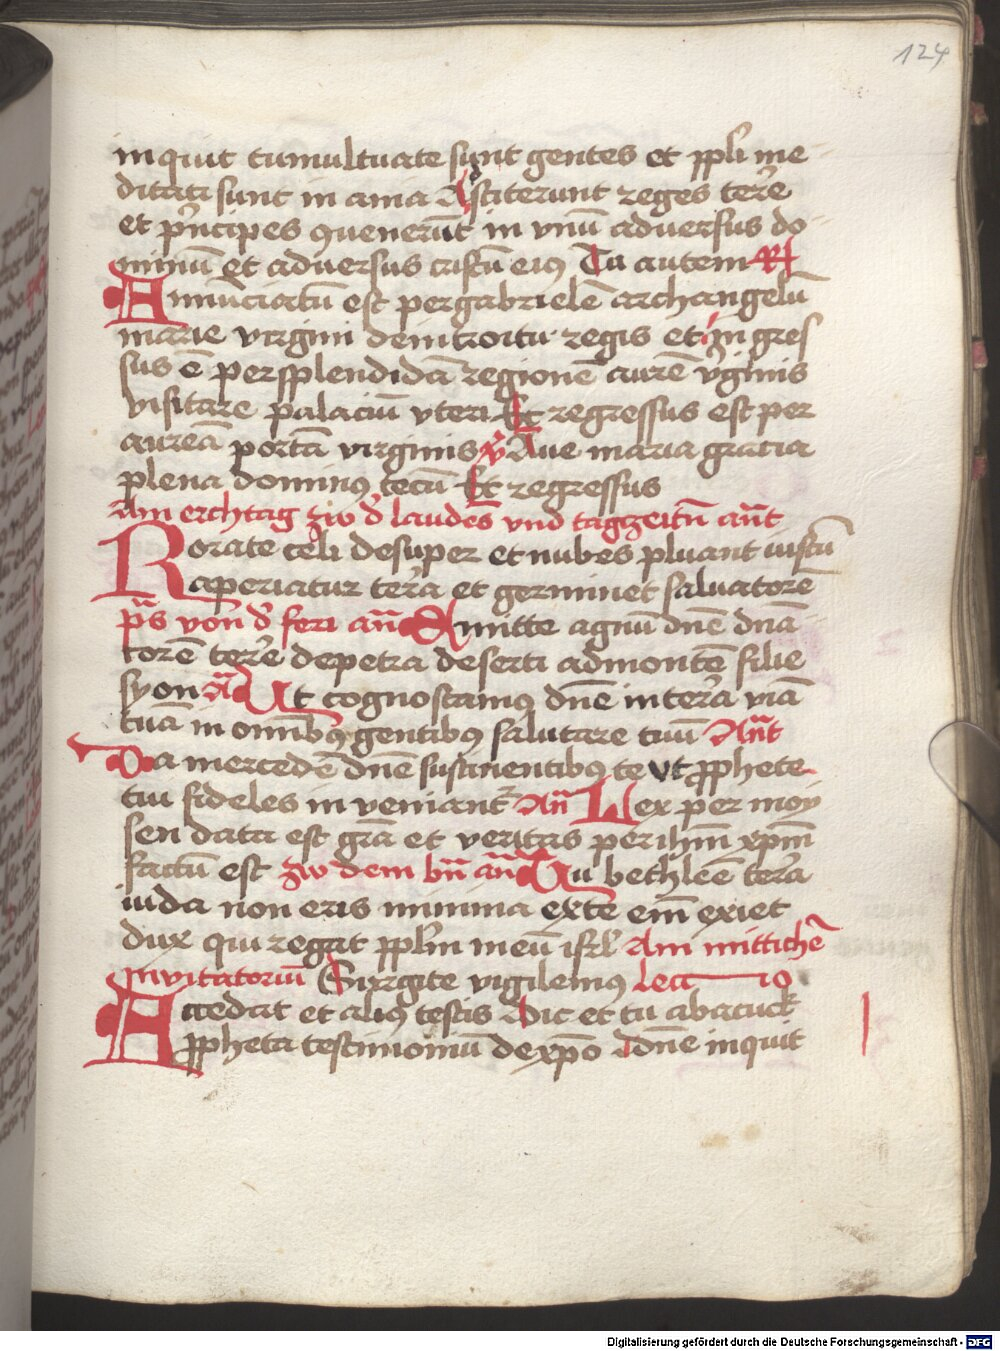 124
inquit tumultuate sunt gentes et ppli me
ditati sunt in ania Astiterunt reges terre
et p̄ncipes ꝯvenerūt in vnū adversus do
minū et adversus cristū eiꝰ Tu autem R
Annūciatū est per gabrielē archangelū
marie virgini de introitu regis et in gres
sus ē per spplendidā regionē aureē v̓ginis
visitare palaciū vteri Et regressus est per
aureā portā virginis v̓ Aue maria gracia
plena dominꝰ tecū Et regressus
Am erchtag zw d̓ laudes vnd tagzeitn̄ an̄t
Rorate celi desuper et nubes pluant iustū
aperiatur terra et germinet salvatorē
ps von d̓ feri an̄ Emitte agnū dnē dn̄a
torē terre de petra deserti ad montē filie
syon a Ut cognoscamꝰ dnē in terra viā
tuā in omībꝰ gentibꝰ salutare tuū An̄t
Da mercedē dnē sustinentibꝰ te vt ꝓphete
tui fideles in veniantr̄ An̄ Lex per moy
sen data est grā et veritas per ihm̄ xpm̄
factū est zw dem bn̄ an̄ Tu bethleē terra
iuda non eris minima ex te em̄ exiet
dux qui regat pplm̄ meū isrl̓ Am mittichē
Invitatoriū Surgite vigilemꝰ Lectio
Accedat et aliꝰ testis Dic et tu abacuck
ꝓpheta testimoniū de xp̄o dnē inquit
Digitalisierung gefördert durch die Deutsche Forschungsgemeinschaft - DFG